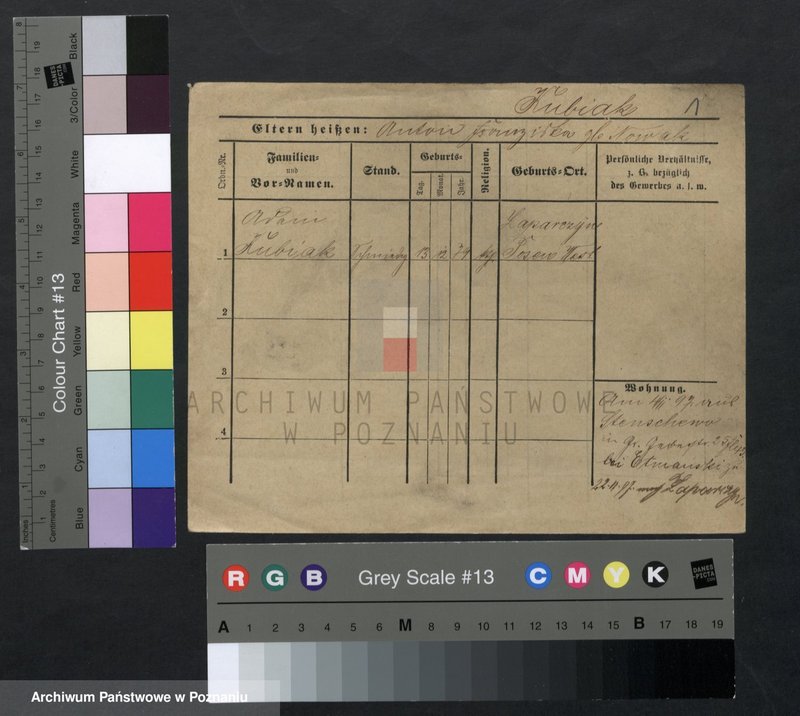 Kubiak 1
Eltern heißen: Anton Franziska gb Nowak
Ordn.-Nr.
Familien-
und
Vor-Namen.
Stand.
Geburts-
Tag.
Monat.
Jahr.
Religion.
Geburts-Ort.
Persönliche Verhältnisse,
z. B. bezüglich
des Gewerbes u. s. w.
Adam
1 Kubiak 13 12 79 Posen West
2
3
4
Wohnung.
Am 97
Stenschewo
in Gr.
bei Etmanski zu
22.11.97
ARCHIWUM PAŃSTWOWE
W POZNANIU
Colour Chart #13
Black
3/Color
White
Magenta
Red
Yellow
Green
Cyan
Blue
Inches
Centimetres
DANES
-PICTA
.COM
R G B Grey Scale #13 C M Y K
DANES
-PICTA
.COM
A 1 2 3 4 5 6 M 8 9 10 11 12 13 14 15 B 17 18 19
Archiwum Państwowe w Poznaniu